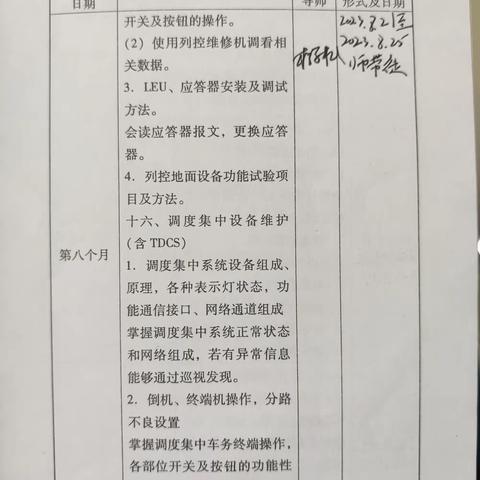 日期
导师
形式及日期
开关及按钮的操作。
(2) 使用列控维修机调看相
关数据。
3. LEU、应答器安装及调试
方法。
会读应答器报文，更换应答
器。
4. 列控地面设备功能试验项
目及方法。
十六、调度集中设备维护
(含 TDCS)
第八个月
1. 调度集中系统设备组成、
原理，各种表示灯状态，功
能通信接口、网络通道组成
掌握调度集中系统正常状态
和网络组成，若有异常信息
能够通过巡视发现。
2. 倒机、终端机操作，分路
不良设置
掌握调度集中车务终端操作，
各部位开关及按钮的功能性
2023.8.21至
2023.8.25
师带徒